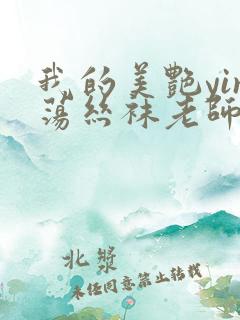 我的美艷yin
蕩絲袜老師
北漿
未经同意禁止转载